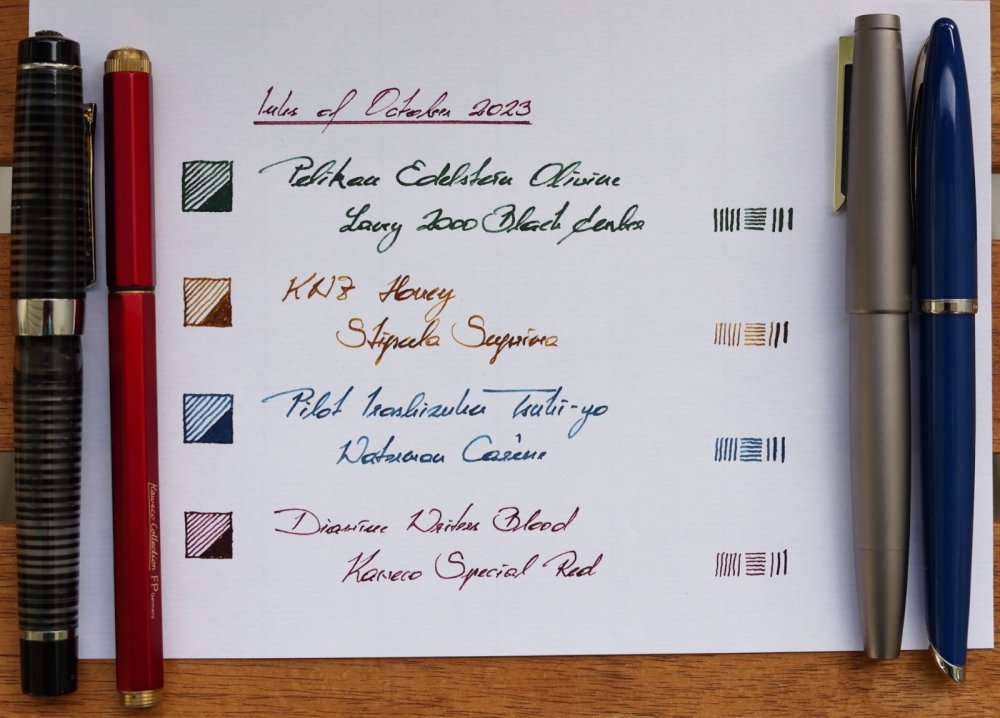 Inks of October 2023
Pelikan Edelstein Olivine
Lamy 2000 Black
KWZ Honey
Stipula Suprema
Pilot Iroshizuku Tsuki-yo
Waterman Carène
Diamine Writers Blood
Kaweco Special Red
Kaweco Collection FP Germany